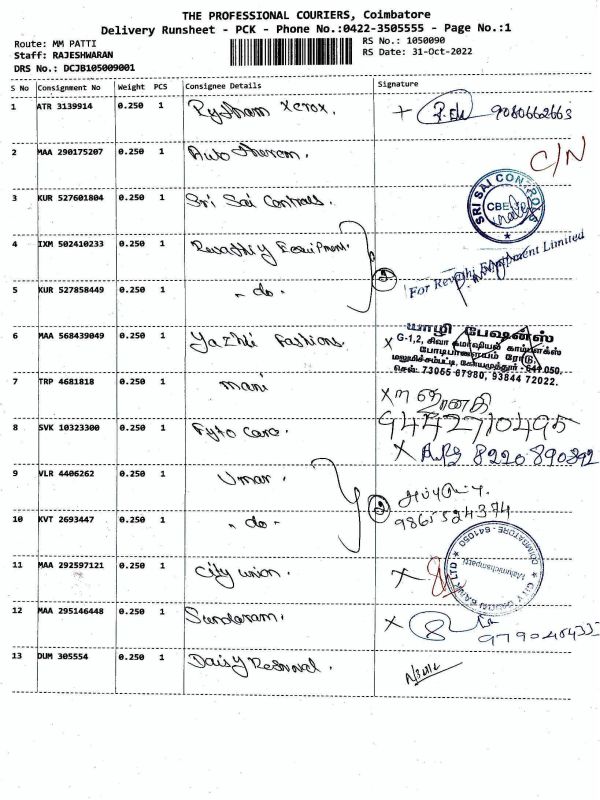 THE PROFESSIONAL COURIERS, Coimbatore
Delivery Runsheet - PCK - Phone No.:0422-3505555 - Page No.:1
Route: MM PATTI
RS No.: 1050090
Staff: RAJESHWARAN
RS Date: 31-Oct-2022
DRS No.: DCJB105009001
S No Consignment No Weight PCS Consignee Details Signature
1 ATR 3139914 0.250 1 Xerox. 9080662663
2 MAA 290175207 0.250 1 Auto C/N
3 KUR 527601804 0.250 1 Sri Sai Controls.
SRI SAI CONTROLS
CBE
4 IXM 502410233 0.250 1 Revathi Equipment.
2
For Revathi Equipment Limited
5 KUR 527858449 0.250 1 - do -
6 MAA 568439049 0.250 1 Yazhli Fashions. X
யாழி பேஷன்ஸ்
G-1,2, சிவா கமர்ஷியல் காம்ப்ளக்ஸ்
போடிபாளையம் ரோடு,
மலுமிச்சம்பட்டி, கோயமுத்தூர் - 641 050.
செல்: 73055 67980, 93844 72022.
7 TRP 4681818 0.250 1 mani X
9442710495
8 SVK 10323300 0.250 1 Fyto Care. X 8220890392
9 VLR 4406262 0.250 1 Umar.
2
9865524374
10 KVT 2693447 0.250 1 - do -
11 MAA 292597121 0.250 1 City union. X
CITY UNION BANK LTD
COIMBATORE - 641050
Malumichampatti
12 MAA 295146448 0.250 1 Sundaram. X
13 DUM 305554 0.250 1 Daisy